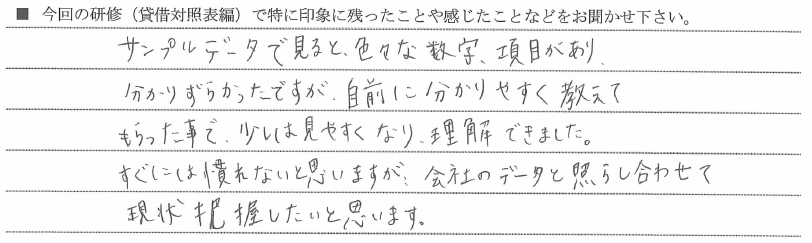 ■ 今回の研修（貸借対照表編）で特に印象に残ったことや感じたことなどをお聞かせ下さい。
サンプルデータで見ると、色々な数字、項目があり、
分かりずらかったですが、自前に分かりやすく教えて
もらった事で、少しは見やすくなり、理解できました。
すぐには慣れないと思いますが、会社のデータと照らし合わせて
現状把握したいと思います。